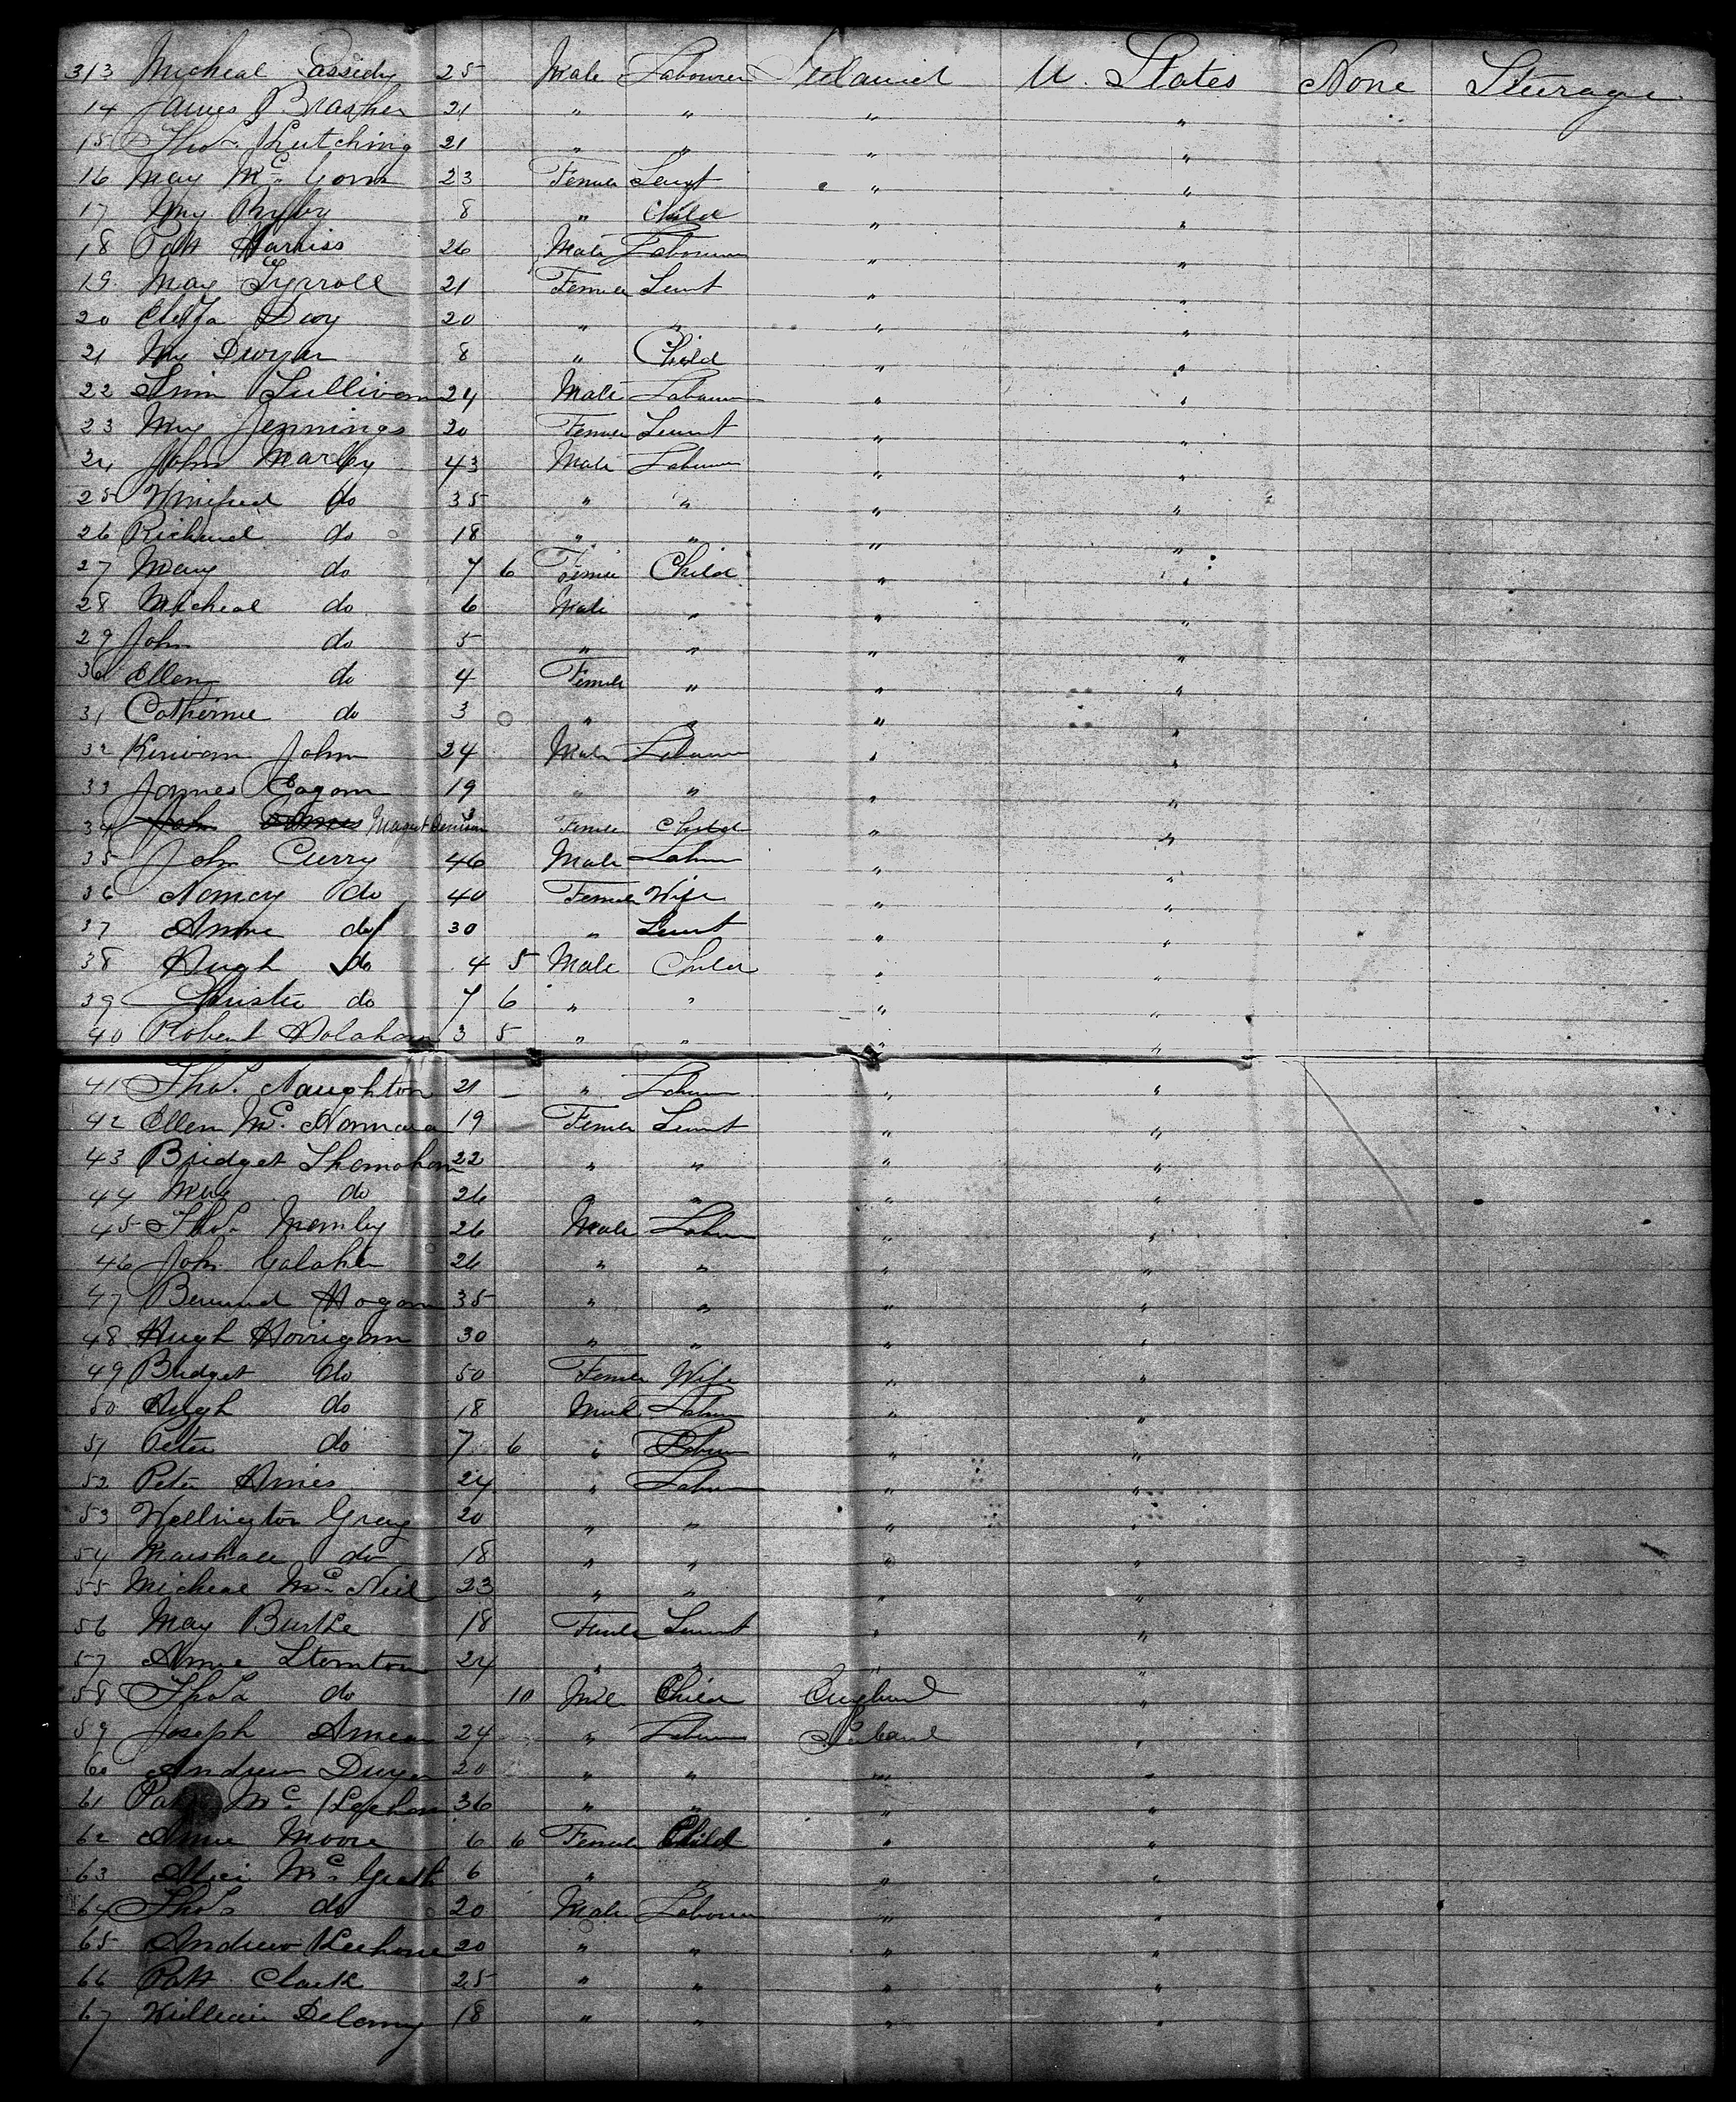 313 Micheal Cassidy 25 Male Labourer Ireland U. States None Sturage
14 James Brasher 21 " " " "
15 Thos. Hutching 21 " " " "
16 May Mc. 23 Female Servt " "
17 My 8 " Child " "
18 Patt Harriss 26 Male Labourer " "
19 May 21 Female Servt " "
20 Eliza 20 " " " "
21 My Dwyer 8 " Child " "
22 Sullivan 24 Male Labourer " "
23 My Jennings 20 Female Servt " "
24 John Marley 43 Male Labourer " "
25 Winifred do 35 " " " "
26 Richard do 18 " " " "
27 Mary do 7 6 Female Child " "
28 Micheal do 6 Male " " "
29 John do 5 " " " "
30 Ellen do 4 Female " " "
31 Catherine do 3 " " " "
32 Kirwan John 24 Male Labourer " "
33 James Eagan 19 " " " "
34 John Female Child " "
35 John Curry 46 Male Labourer " "
36 Nancy do 40 Female Wife " "
37 Anne do 30 " Servt " "
38 Hugh do 4 5 Male Child " "
39 do 7 6 " " " "
40 Robert Holahan 3 5 " " " "
41 Thos. Naughton 21 " Labourer " "
42 Ellen Mc. Namara 19 Female Servt " "
43 Bridget 22 " " " "
44 My do 26 " " " "
45 Thos. Manley 26 Male Labourer " "
46 John Galaher 26 " " " "
47 Bernard Hogan 35 " " " "
48 Hugh Horrigan 30 " " " "
49 Bridget do 50 Female Wife " "
50 Hugh do 18 Male Labourer " "
51 Peter do 7 6 " Labourer " "
52 Peter Hines 24 " Labourer " "
53 Wellington Grey 20 " " " "
54 Marshall do 18 " " " "
55 Micheal Mc. Neil 23 " " " "
56 May Burke 18 Female Servt " "
57 Anne Stanton 24 " " " "
58 Thos. do 10 Male Child England "
59 Joseph 24 " Labourer Ireland "
60 Andrew Dwyer 20 " " " "
61 Patt Mc. 36 " " " "
62 Anne Moore 6 6 Female Child " "
63 Alice Mc. Grath 6 " " " "
64 Thos do 20 Male Labourer " "
65 Andrew Keehone 20 " " " "
66 Patt Clark 25 " " " "
67 William Delany 18 " " " "